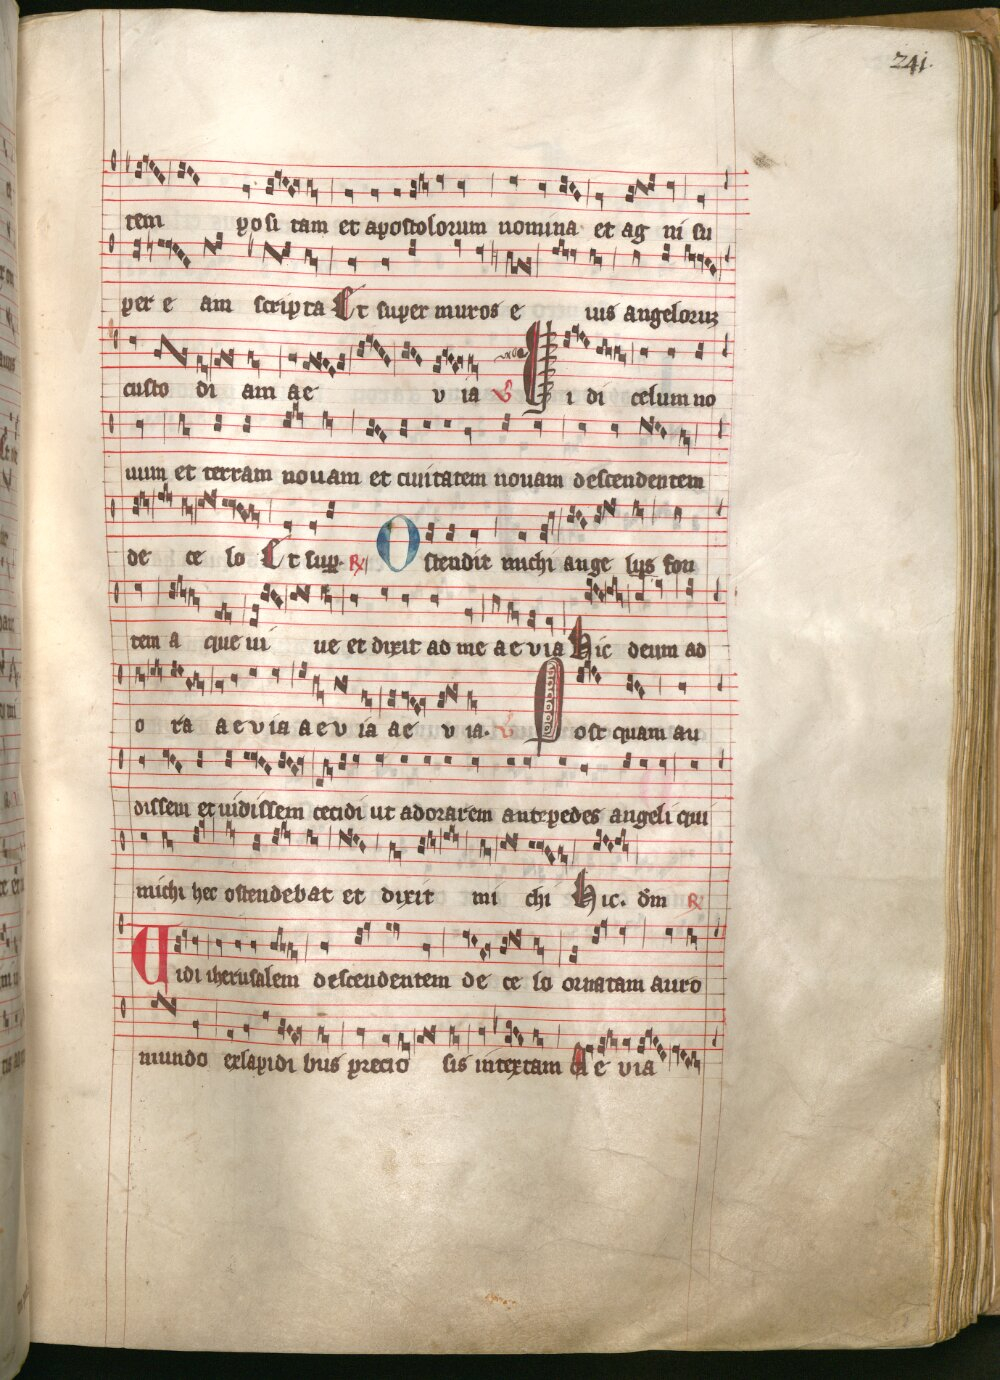 241.
tem posi tam et apostolorum nomina et ag ni su
per e am scripta Et super muros e ius angelorum
custo di am ae v ia V Vi di celum no
uum et terram nouam et ciuitatem nouam descendentem
de ce lo Et sup. R Ostendit michi ange lus fon
tem a que ui ue et dixit ad me a e v ia hic deum ad
o ra a e v ia a e v ia ae v ia. V Post quam au
dissem et uidissem cecidi ut adorarem ante pedes angeli qui
michi hec ostendebat et dixit mi chi hic. dm R
Uidi iherusalem descendentem de ce lo ornatam auro
mundo ex lapidi bus precio sis intextam A e v ia